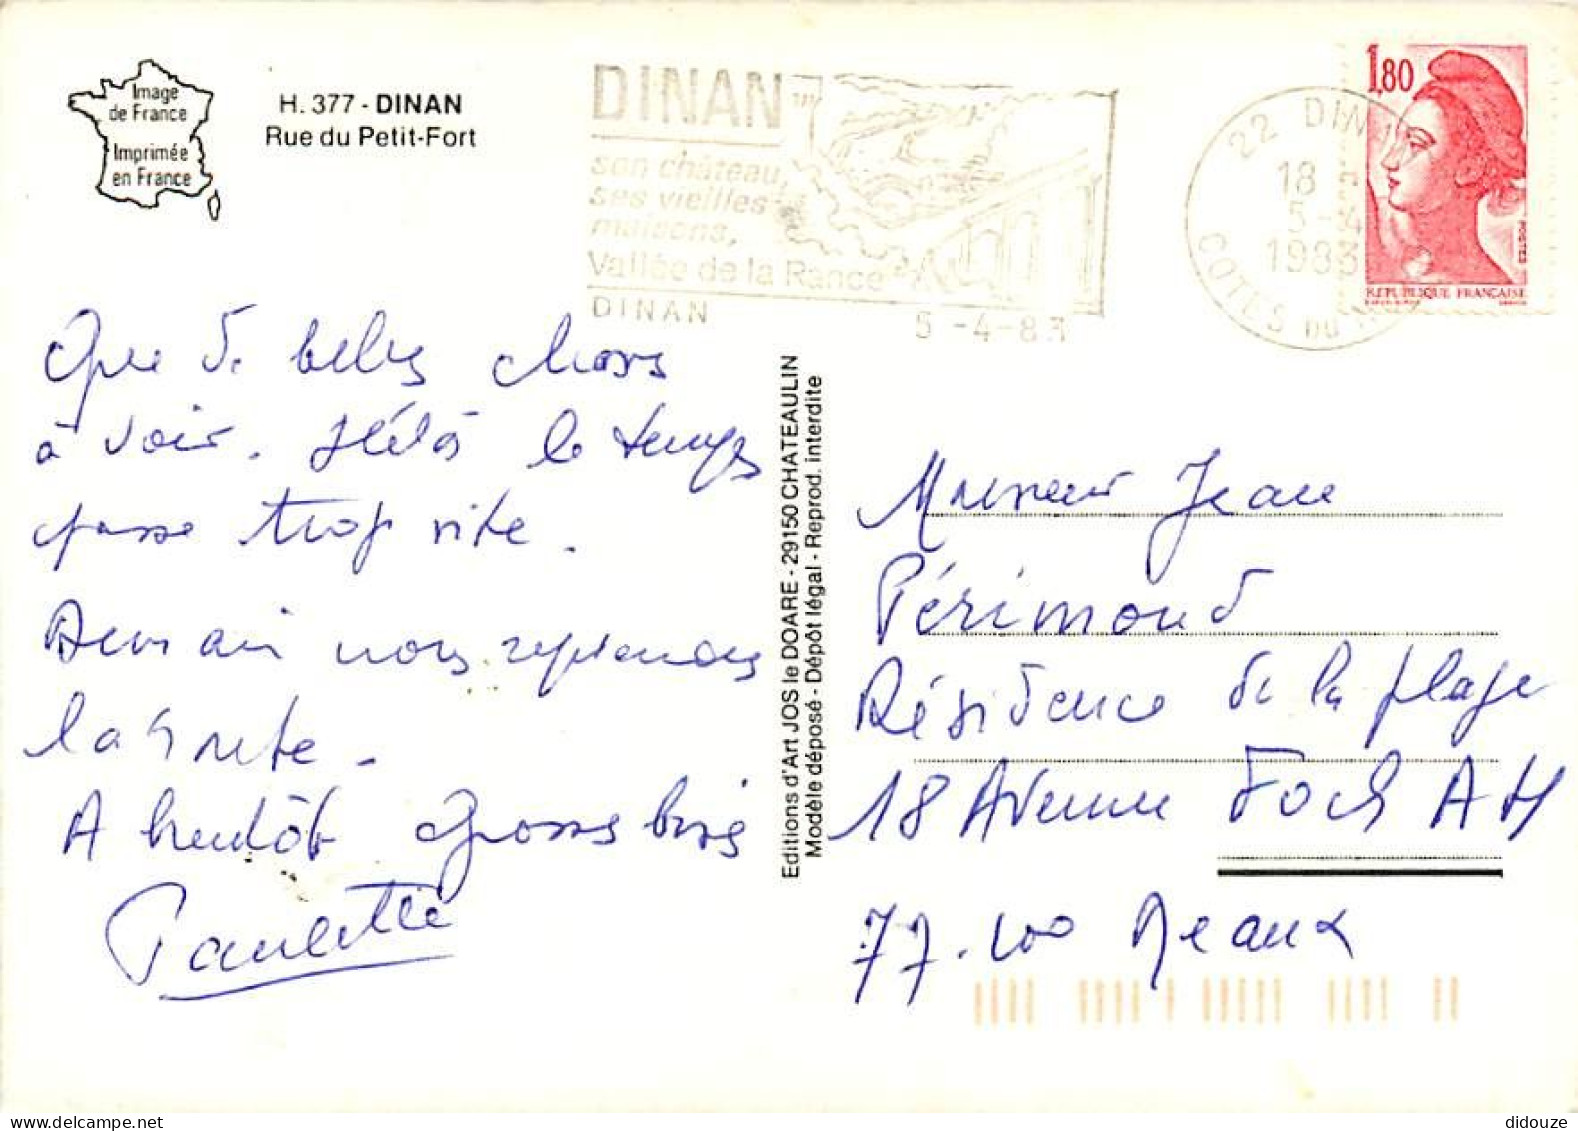 Image
de France
Imprimée
en France
H. 377 - DINAN
Rue du Petit-Fort
DINAN
son château,
ses vieilles
maisons,
Vallée de la Rance
DINAN
5 -4-83
22 DINAN
18 H
5-4
1983
COTES DU N
1,80
POSTES
REPUBLIQUE FRANÇAISE
Que de belles choses
à voir. Hélas le temps
passe trop vite.
Demain nous reprenons
la route.
A bientôt Grosses bises
Paulette
Editions d'Art JOS le DOARE - 29150 CHATEAULIN
Modèle déposé - Dépôt légal - Reprod. interdite
Monsieur Jean
Périmond
Résidence de la plage
18 Avenue Foch A H
77.100 Meaux
didouze